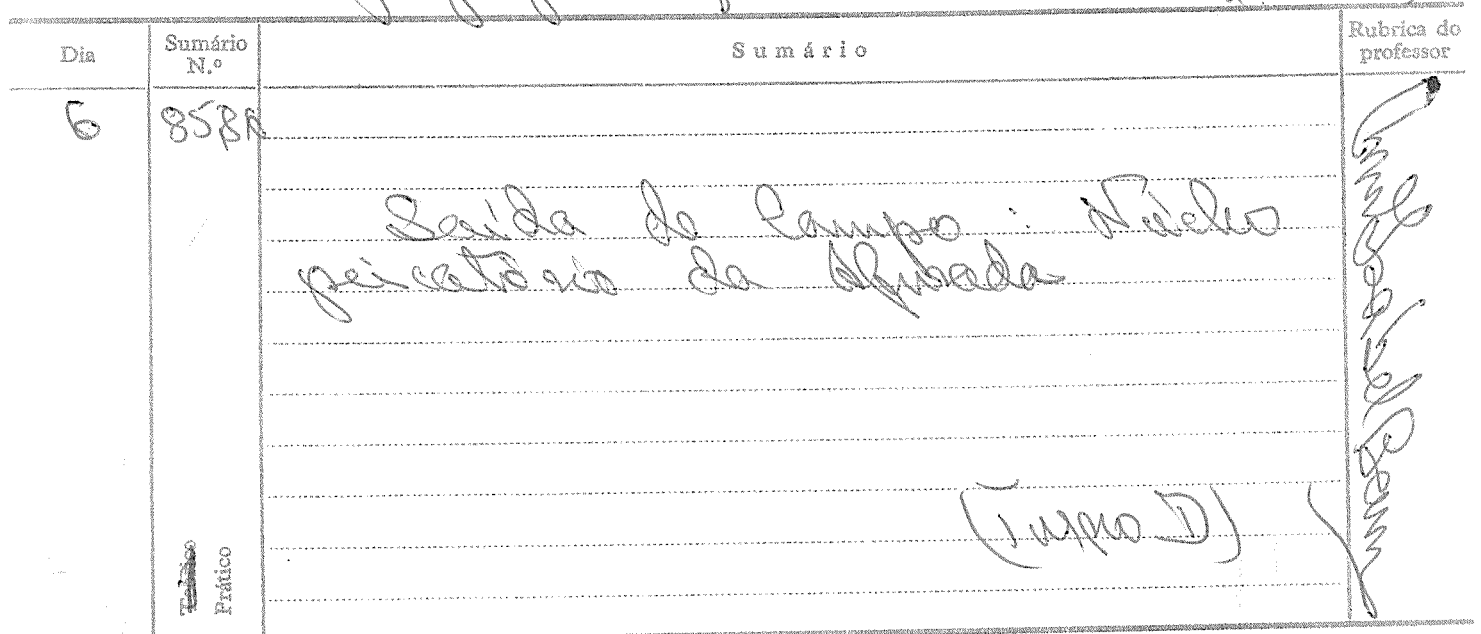 Dia
Sumário N.º
Sumário
Rubrica do professor
6
Saída de Campo: Núcleo
piscatório da Afurada
(Turma D)
Teórico
Prático